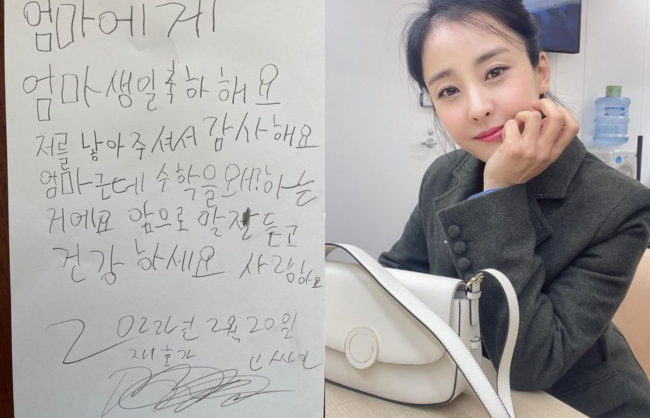 엄마에게
엄마 생일축하해요
저를 낳아주셔서 감사해요
엄마근데 수학을왜하는
거에요 앞으로 말잘듣고
건강 하세요 사랑해요
2022년 2월 20일
재호가